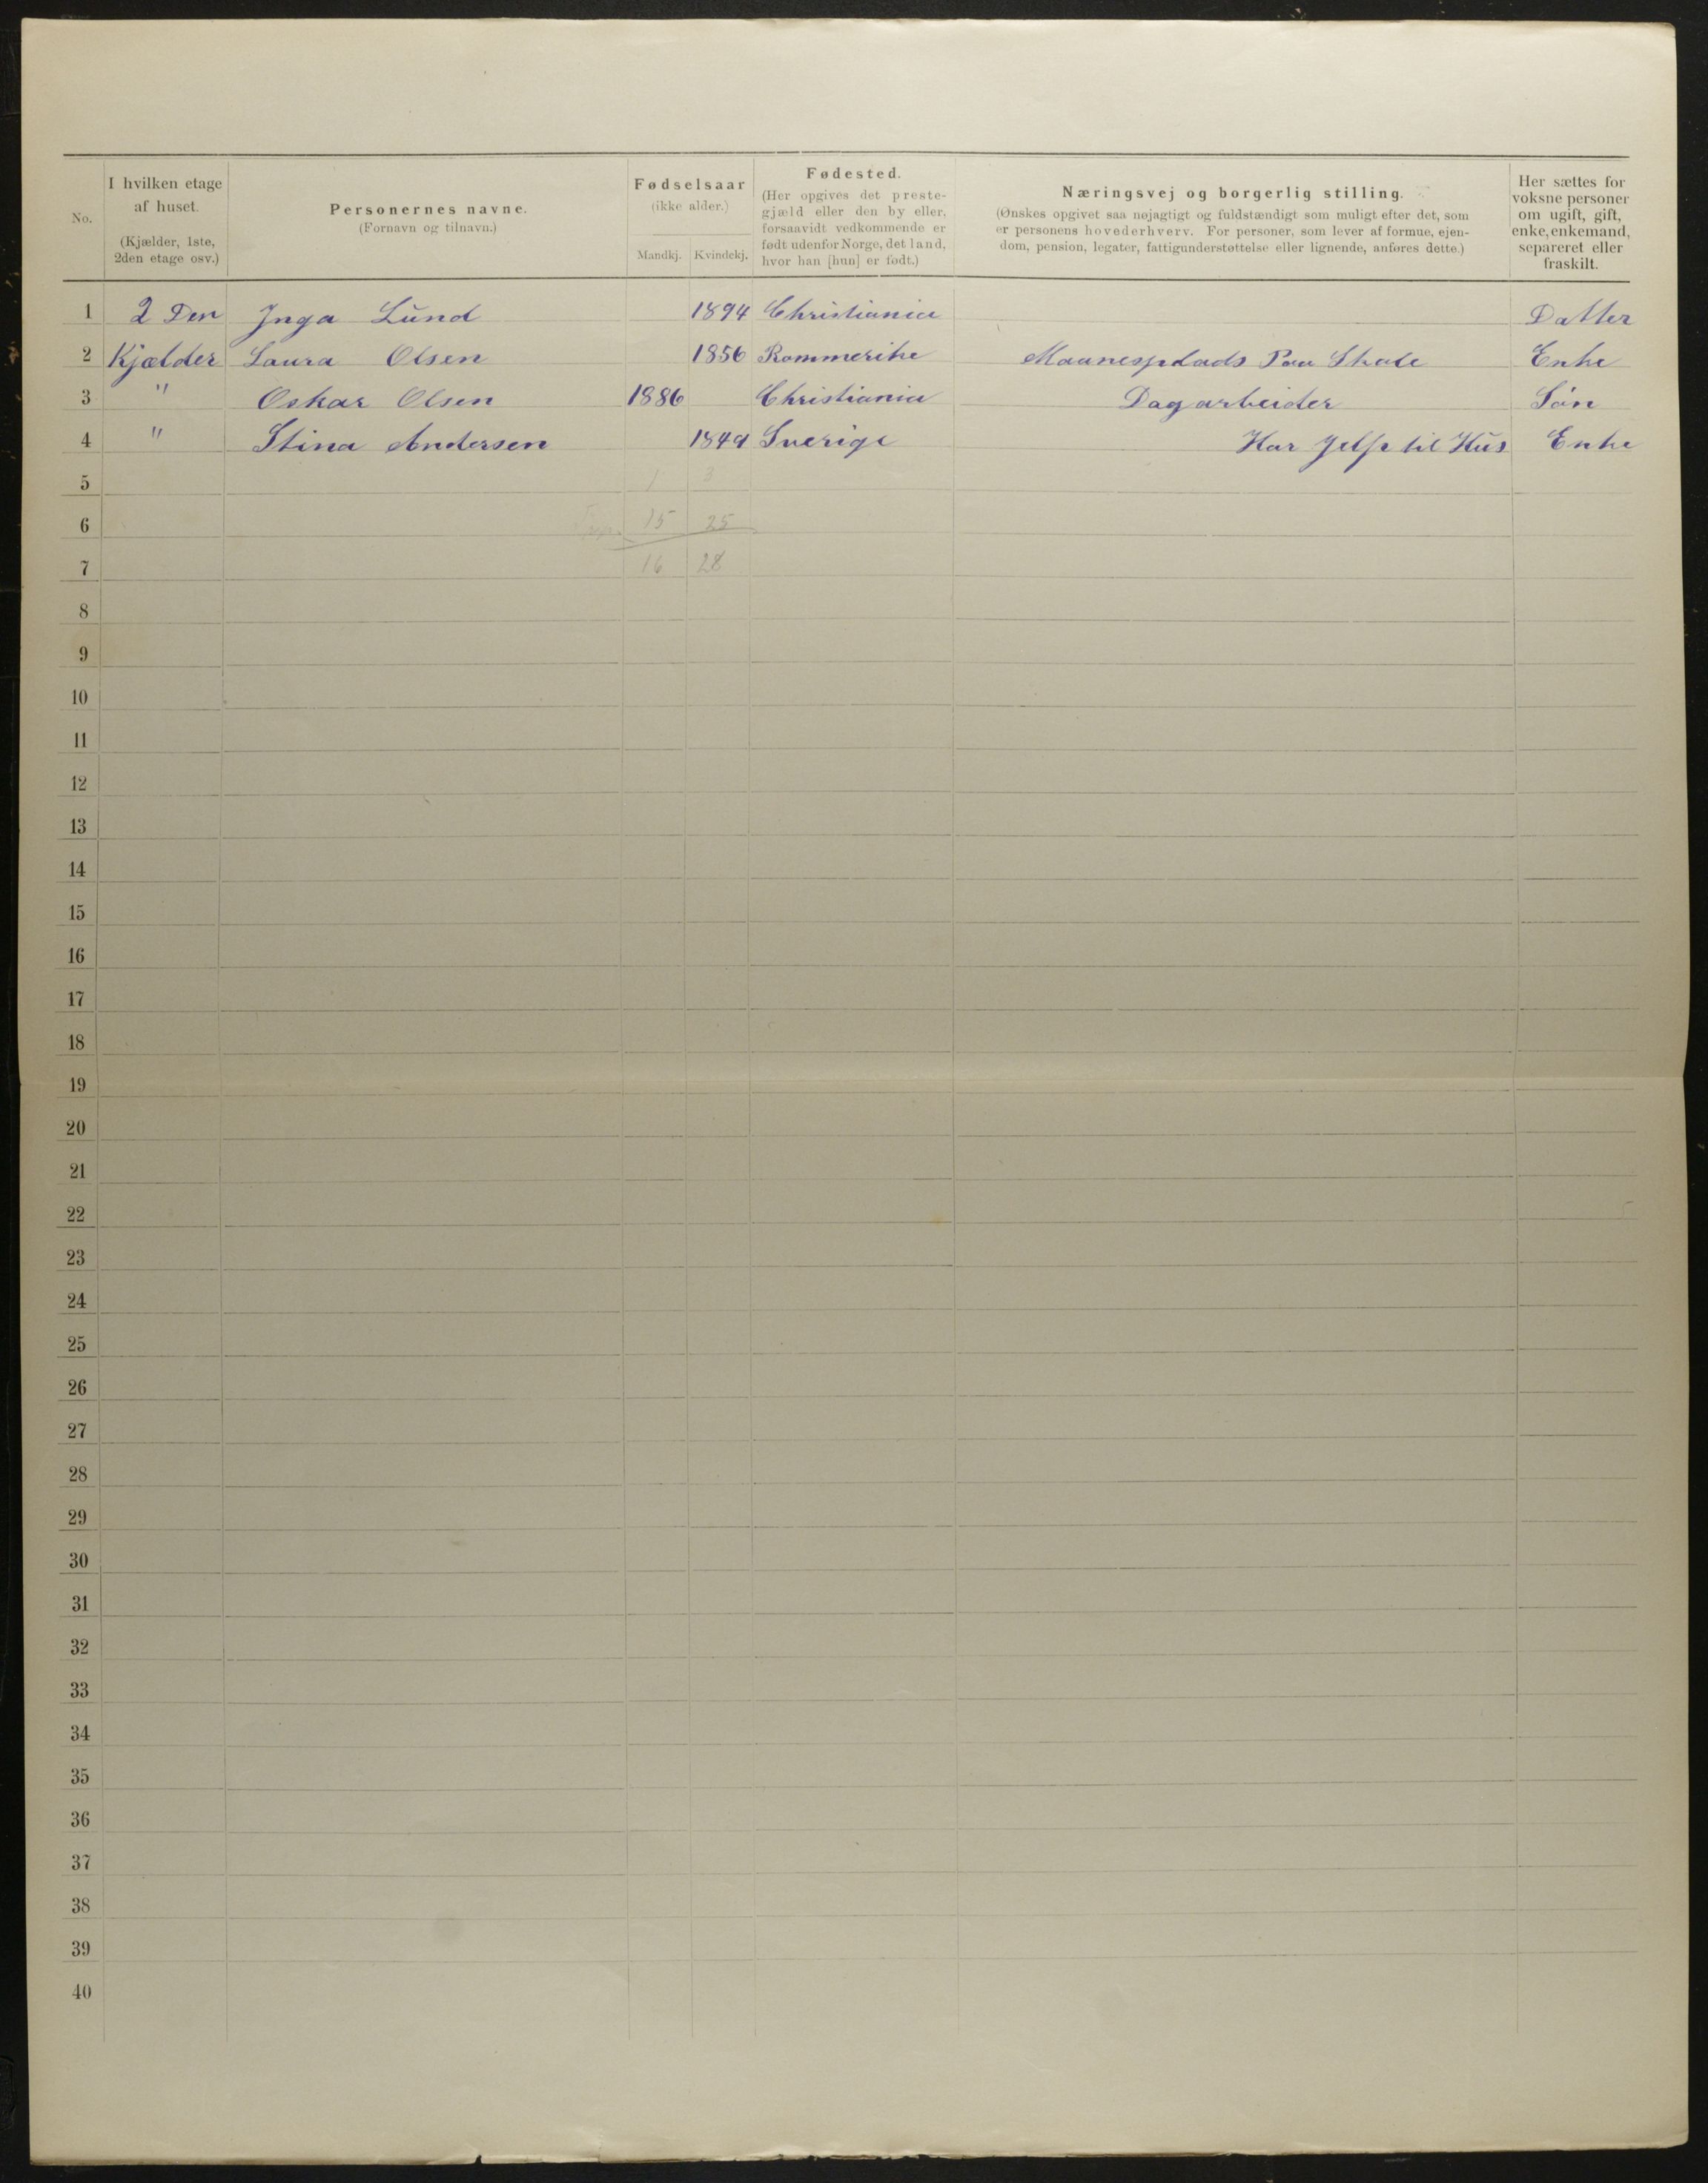 No.
I hvilken etage
af huset.
(Kjælder, 1ste,
2den etage osv.)
Personernes navne.
(Fornavn og tilnavn.)
Fødselsaar
(ikke alder.)
Mandkj. Kvindekj.
Fødested.
(Her opgives det preste-
gjæld eller den by eller,
forsaavidt vedkommende er
født udenfor Norge, det land,
hvor han [hun] er født.)
Næringsvej og borgerlig stilling.
(Ønskes opgivet saa nøjagtigt og fuldstændigt som muligt efter det, som
er personens hovederhverv. For personer, som lever af formue, ejen-
dom, pension, legater, fattigunderstøttelse eller lignende, anføres dette.)
Her sættes for
voksne personer
om ugift, gift,
enke, enkemand,
separeret eller
fraskilt.
1 2 Den Inga Lund 1894 Christiania Datter
2 Kjælder Laura Olsen 1856 Rommerike Maanesplads Paa Skole Enke
3 " Oskar Olsen 1886 Christiania Dagarbeider Søn
4 " Stina Andersen 1849 Sverige Har Jelp til Hus Enke
5 1 3
6 15 25
7 16 28
8
9
10
11
12
13
14
15
16
17
18
19
20
21
22
23
24
25
26
27
28
29
30
31
32
33
34
35
36
37
38
39
40